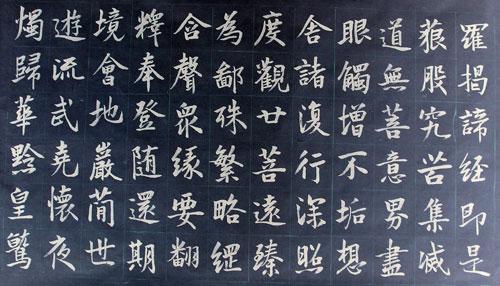 羅揭諦经即是
股究苦集滅
道無菩意界盡
眼觸增不垢想
舍諸復行深照
度觀廿菩遠臻
為鄙硃繁略
含聲眾緣要翻
釋奉登随還期
境會地巖蕳世
遊流武堯懷夜
燭歸華黔皇鷲